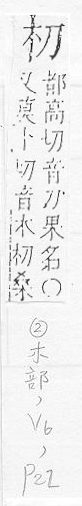 朷
都高切音刀果名〇
又莫卜切音木朷桑
②木部,V6,
P22